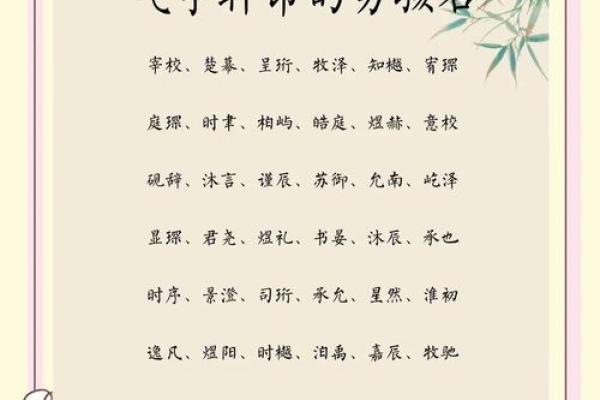 气宇轩昂的男孩名
宰校、楚幕、呈珩、牧泽、知樾、宥琛
庭琛、时聿、柏屿、皓庭、煜赫、意校
砚辞、沐言、谨辰、苏御、允南、屹泽
显琛、君尧、煜礼、书晏、沐辰、承也
时序、景澄、司珩、承允、星然、淮初
逸凡、煜阳、时樾、洎禹、嘉辰、牧驰